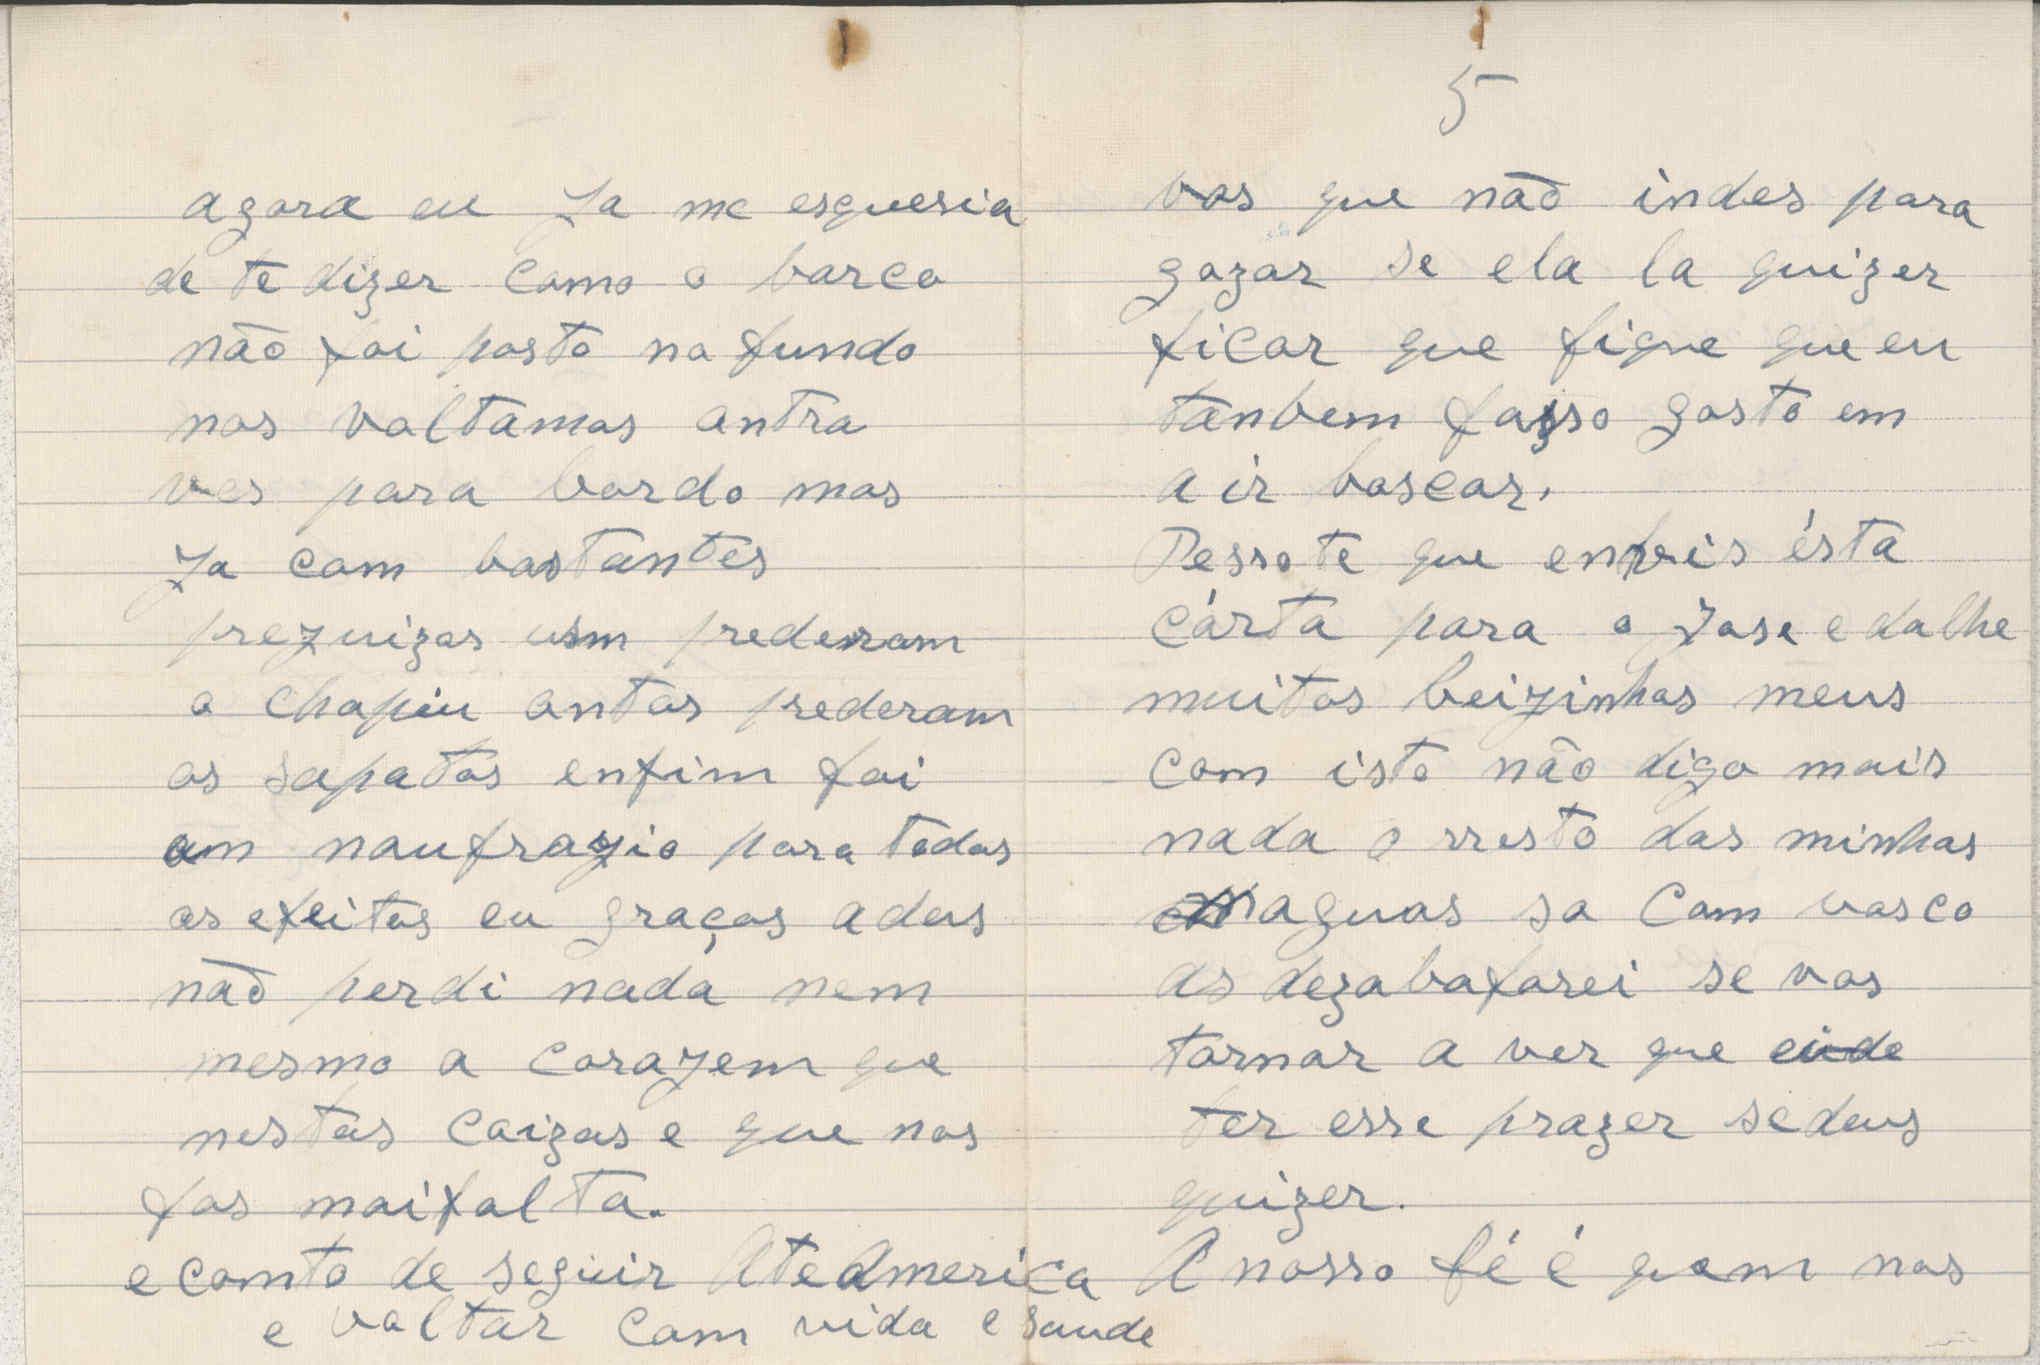 agora eu Ja me esqueria
de te dizer como o barco
não foi posto no fundo
nos voltamos outra
ves para bordo mas
Ja com bastantes
prezuizos usm prederam
o chapiu outos prederam
os sapatos enfim foi
um naufragio para todos
os efeitos eu graças adeus
não perdi nada nem
mesmo a corajem que
nestas coizas e que nos
fas maifalta.
e comto de seguir Ate America
e voltar com vida e saude
5
vos que não indes para
gozar se ela la quizer
ficar que fique que eu
tanbem fasso gosto em
a ir boscar.
Pessote que enveis ésta
cárta para o Jose e dalhe
muitos beizinhos meus
com isto não digo mais
nada o rresto das minhas
maguas so com vosco
as dezabafarei se vos
tornar a ver que eide
ter esse prazer sedeus
quizer.
A nosso fé é quem nos